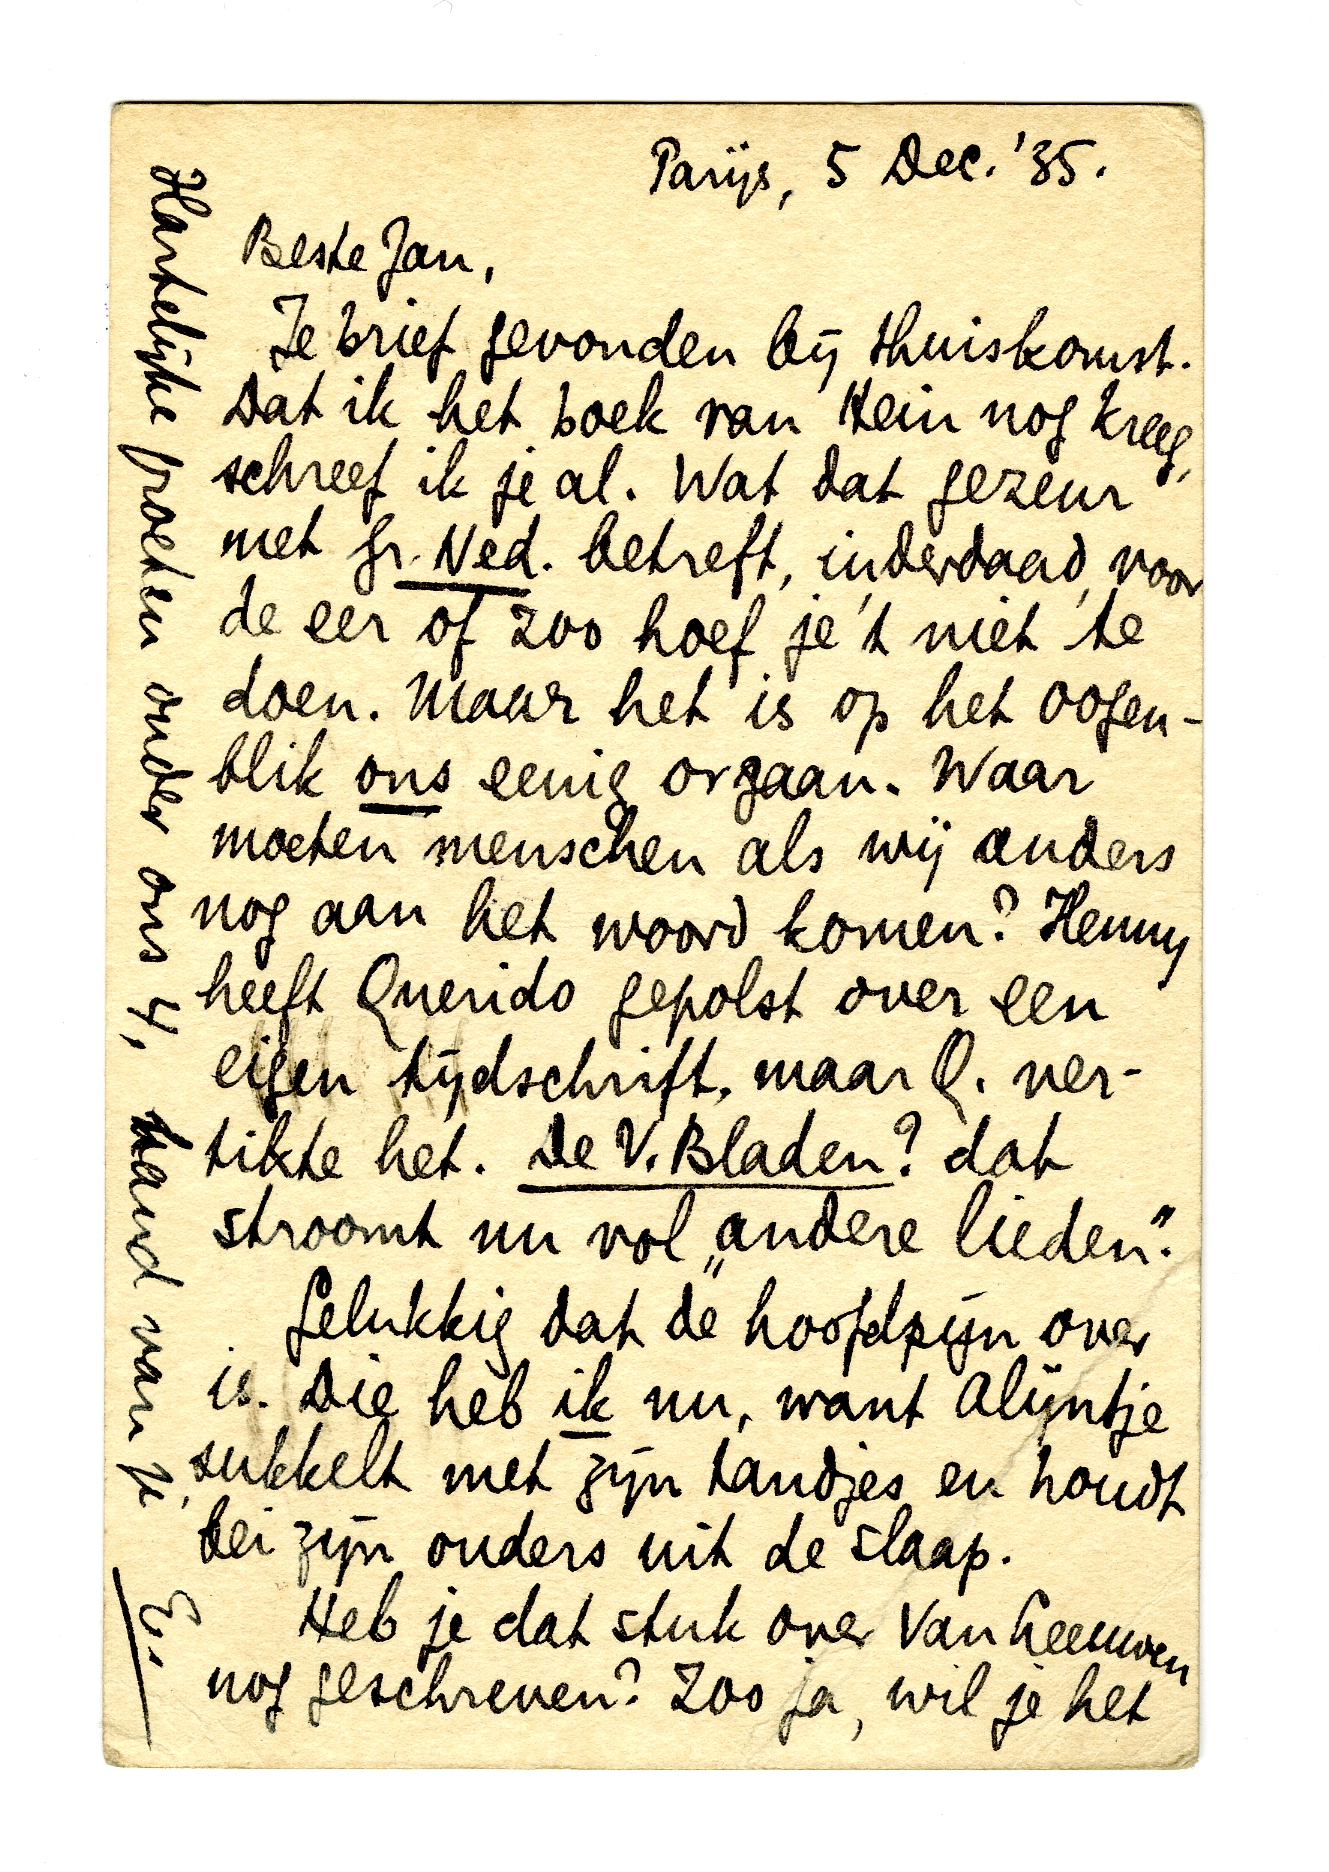 Parijs, 5 Dec. '35.
Beste Jan,
Je brief gevonden bij thuiskomst.
Dat ik het boek van Hein nog kreeg,
schreef ik je al. Wat dat gezeur
met Gr. Ned. betreft, inderdaad, voor
de eer of zoo hoef je 't niet te
doen. Maar het is op het oogen-
blik ons eenig orgaan. Waar
moeten menschen als wij anders
nog aan het woord komen? Henny
heeft Querido gepolst over een
eigen tijdschrift, maar Q. ver-
tikte het. De V. Bladen? dat
stroomt nu vol „andere lieden".
Gelukkig dat de hoofdpijn over
is. Die heb ik nu, want Alijntje
sukkelt met zijn tandjes en houdt
bei zijn ouders uit de slaap.
Heb je dat stuk over Van Leeuwen
nog geschreven? Zoo ja, wil je het
Hartelijke groeten onder ons 4, hand van je
E.